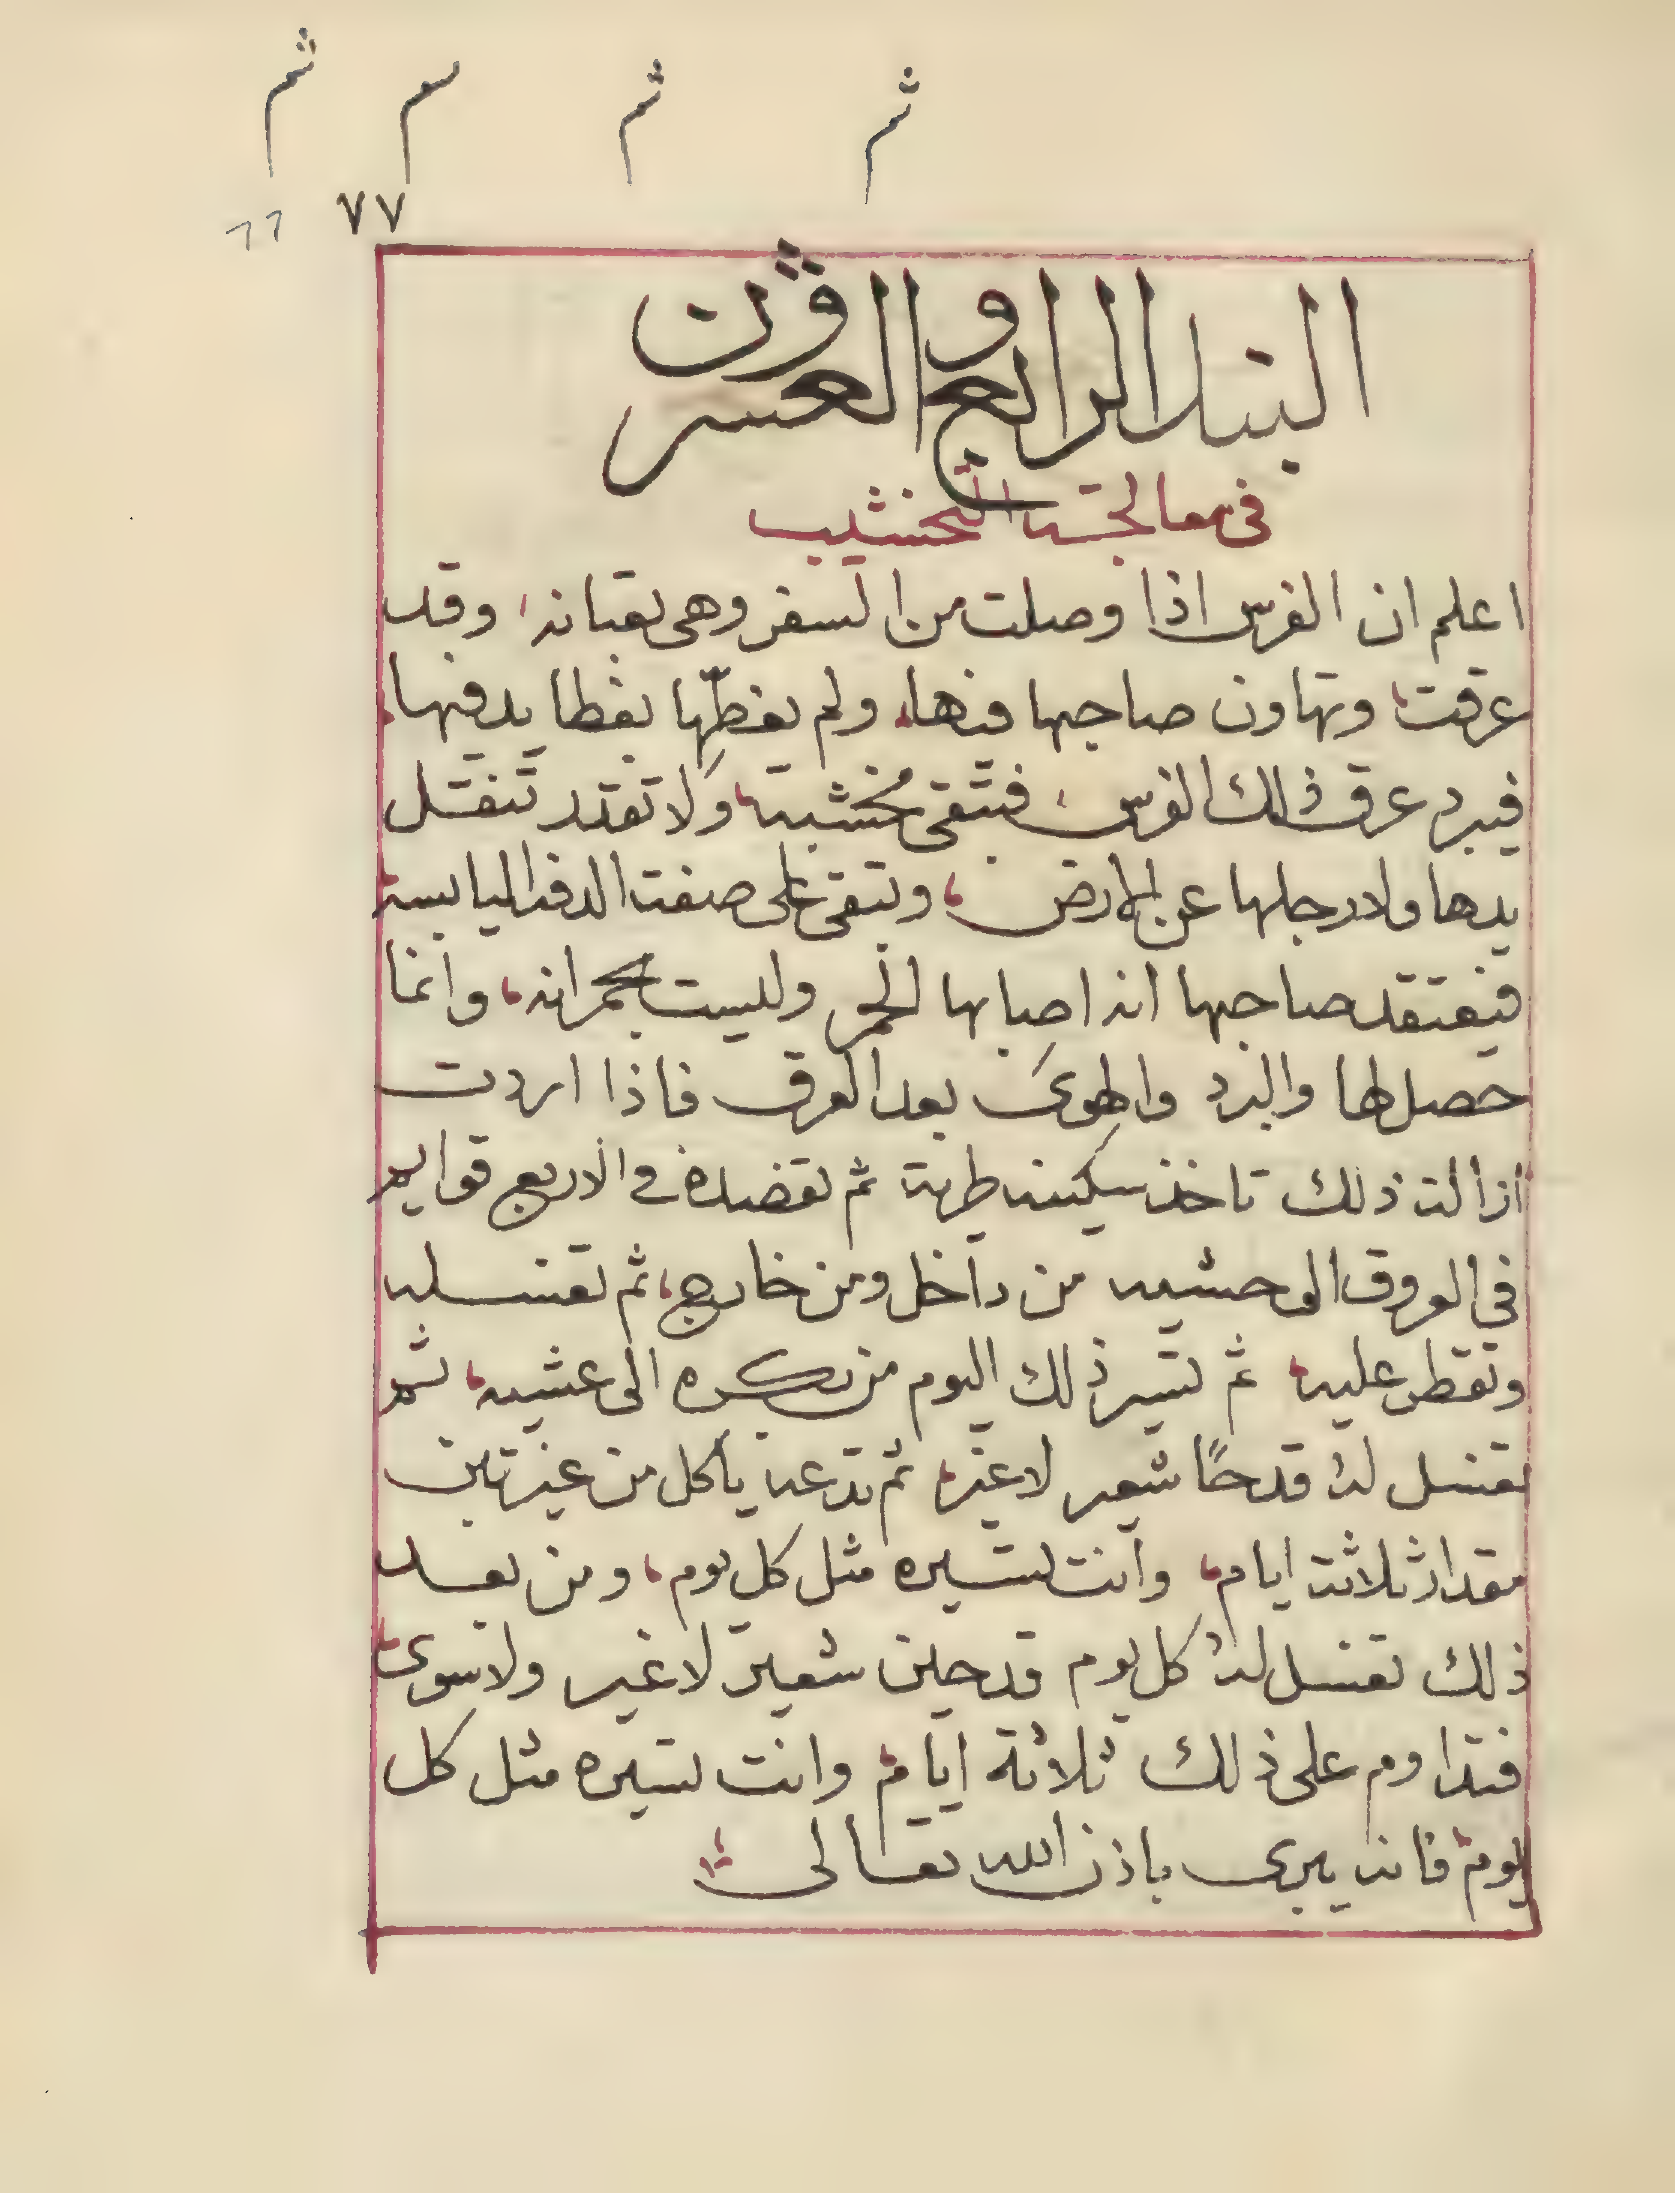 ثم ثم سم ثم
٧٧ ٦٦
البند الرابع والعشرون
في معالجة التخشيب
اعلم ان الفرس اذا وصلت من السفر وهي تعبانه وقد
عرقت وتهاون صاحبها فيها ولم يغطّها بغطا يدفيها
فيبرد عرق ذلك الفرس فتبقى مخشبه ولا تقدر تنقل
يدها ولا رجلها عن الارض وتبقى على صفة الدفة اليابسة
فيعتقد صاحبها انه اصابها الحمر وليست بحمرانه وانما
حصل لها والبرد والهوى بعد العرق فاذا اردت
ازالة ذلك تاخذ سكينه طرية ثم تفصده في الاربع قوايم
في العروق الوحشيه من داخل ومن خارج ثم تغسله
وتقطر عليه ثم تسير ذلك اليوم من بكره الى عشيه ثم
تغسل له قدحًا شعير لا غير ثم تدعه ياكل من غير تبن
مقدار ثلاثة ايام وانت تسيره مثل كل يوم ومن بعد
ذلك تغسل له كل يوم قدحين شعير لا غير ولا سوى
فتداوم على ذلك ثلاثة ايام وانت تسيره مثل كل
يوم فانه يبرى باذن الله تعالى